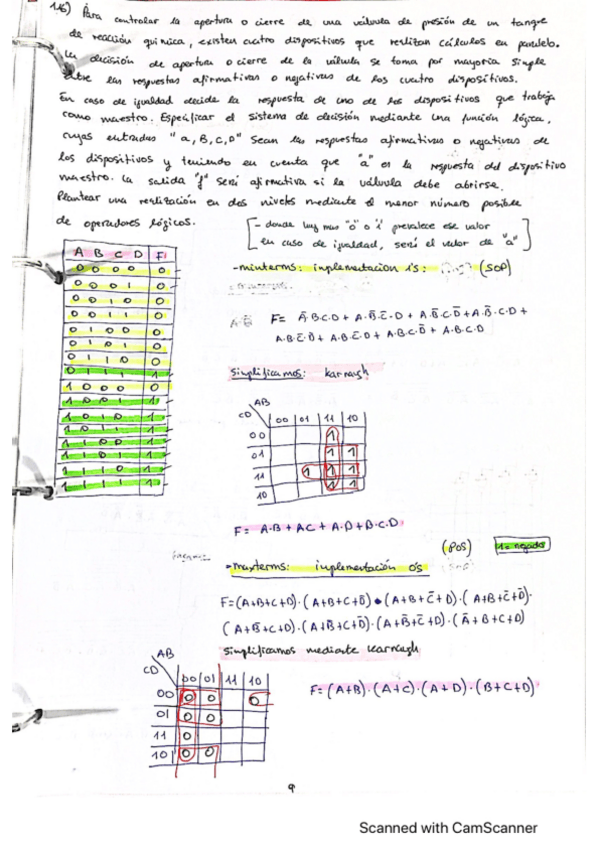 1.16) Para controlar la apertura o cierre de una válvula de presión de un tanque
de reacción química, existen cuatro dispositivos que realizan cálculos en paralelo.
La decisión de apertura o cierre de la válvula se toma por mayoría simple
entre las respuestas afirmativas o negativas de los cuatro dispositivos.
En caso de igualdad decide la respuesta de uno de los dispositivos que trabaja
como maestro. Especificar el sistema de decisión mediante una función lógica,
cuyas entradas "a, B, C, D" sean las respuestas afirmativas o negativas de
los dispositivos y teniendo en cuenta que "a" es la respuesta del dispositivo
maestro. La salida "f" será afirmativa si la válvula debe abrirse.
Plantear una realización en dos niveles mediante el menor número posible
de operadores lógicos.
[- donde hay mas "0" o "1" prevalece ese valor
En caso de igualdad, será el valor de "a"]
A B C D F
0 0 0 0 0
0 0 0 1 0
0 0 1 0 0
0 0 1 1 0
0 1 0 0 0
0 1 0 1 0
0 1 1 0 0
0 1 1 1 1
1 0 0 0 0
1 0 0 1 1
1 0 1 0 1
1 0 1 1 1
1 1 0 0 1
1 1 0 1 1
1 1 1 0 1
1 1 1 1 1
-minterms: implementacion 1's: (SOP)
F= Ā·B·C·D + A·B̄·C̄·D + A·B̄·C·D̄ + A·B̄·C·D +
A·B·C̄·D̄ + A·B·C̄·D + A·B·C·D̄ + A·B·C·D
Simplificamos: karnaugh
AB
CD 00 01 11 10
00 1
01 1 1
11 1 1 1
10 1 1
F= A·B + AC + A·D + B·C·D
(POS) 1=negado
-maxterms: implementación 0's
F=(A+B+C+D)·(A+B+C+D̄)·(A+B+C̄+D)·(A+B+C̄+D̄)·
(A+B̄+C+D)·(A+B̄+C+D̄)·(A+B̄+C̄+D)·(Ā+B+C+D)
simplificamos mediante karnaugh
AB
CD 00 01 11 10
00 0 0 0
01 0 0
11 0
10 0 0
F=(A+B)·(A+C)·(A+D)·(B+C+D)
9
Scanned with CamScanner